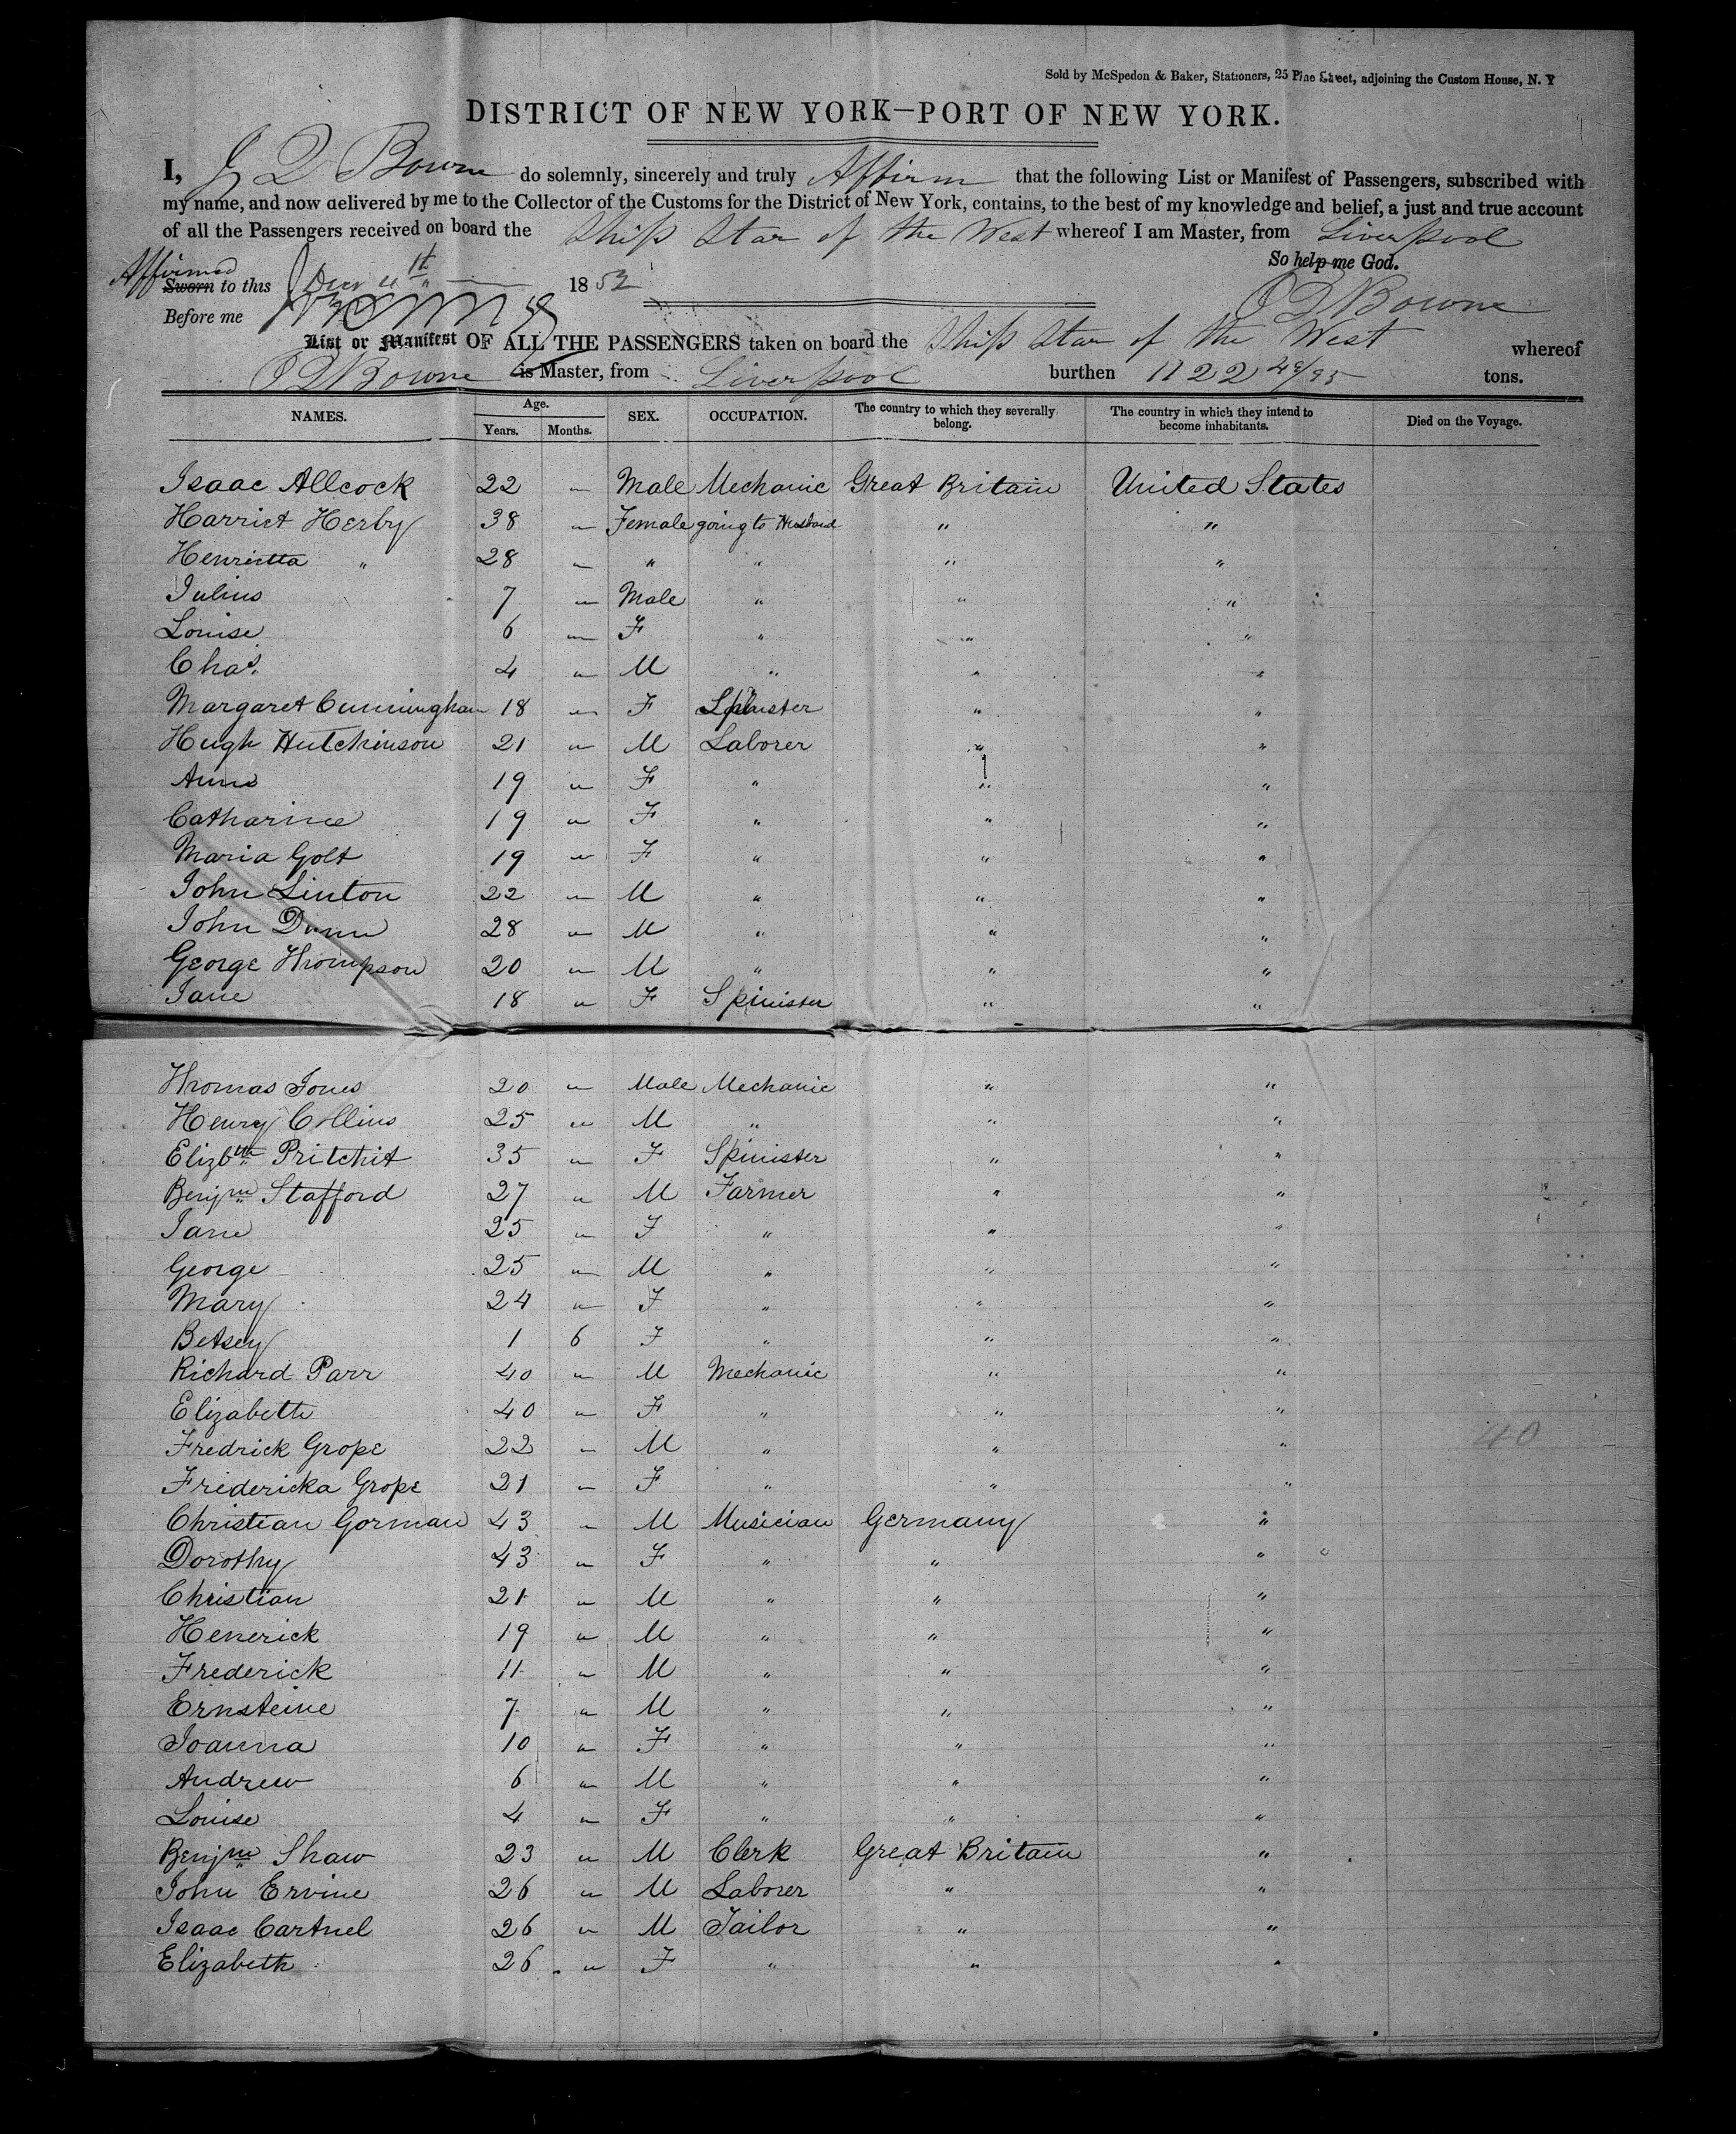 Sold by McSpedon & Baker, Stationers, 25 Pine Street, adjoining the Custom House, N. Y
DISTRICT OF NEW YORK—PORT OF NEW YORK.
I, J D Bowne do solemnly, sincerely and truly Affirm that the following List or Manifest of Passengers, subscribed with
my name, and now delivered by me to the Collector of the Customs for the District of New York, contains, to the best of my knowledge and belief, a just and true account
of all the Passengers received on board the Ship Star of the West whereof I am Master, from Liverpool
So help me God.
Affirmed
Sworn to this 1852
Before me
J D Bowne
List or Manifest OF ALL THE PASSENGERS taken on board the Ship Star of the West whereof
J D Bowne is Master, from Liverpool burthen 1122 tons.
NAMES. Age. SEX. OCCUPATION. The country to which they severally belong. The country in which they intend to become inhabitants. Died on the Voyage.
Years. Months.
Isaac Allcock 22 — Male Mechanic Great Britain United States
Harriet Herby 38 " Female going to Husband " "
Henrietta " 28 " " " " "
Julius 7 " Male " " "
Louise 6 " F " " "
Chas. 4 " M " " "
Margaret Cunningham 18 " F Spinster " "
Hugh Hutchinson 21 " M Laborer " "
Anne 19 " F " " "
Catharine 19 " F " " "
Maria Golt 19 " F " " "
John Linton 22 " M " " "
John Dunn 28 " M " " "
George Thompson 20 " M " " "
Jane 18 " F Spinister " "
Thomas Jones 20 " Male Mechanic " "
Henry Collins 25 " M " " "
Elizbth Pritchit 35 " F Spinister " "
Benjm Stafford 27 " M Farmer " "
Jane 25 " F " " "
George 25 " M " " "
Mary 24 " F " " "
Betsey 1 6 F " " "
Richard Parr 40 " M Mechanic " "
Elizabeth 40 " F " " "
Fredrick Grope 22 " M " " "
40
Fridericka Grope 21 " F " " "
Christian Gorman 43 " M Musician Germany "
Dorothy 43 " F " " "
Christian 21 " M " " "
Henerick 19 " M " " "
Frederick 11 " M " " "
Ernsteine 7 " M " " "
Joanna 10 " F " " "
Andrew 6 " M " " "
Louise 4 " F " " "
Benjm Shaw 23 " M Clerk Great Britain "
John Ervine 26 " M Laborer " "
Isaac Cartnel 26 " M Tailor " "
Elizabeth 26 " F " " "